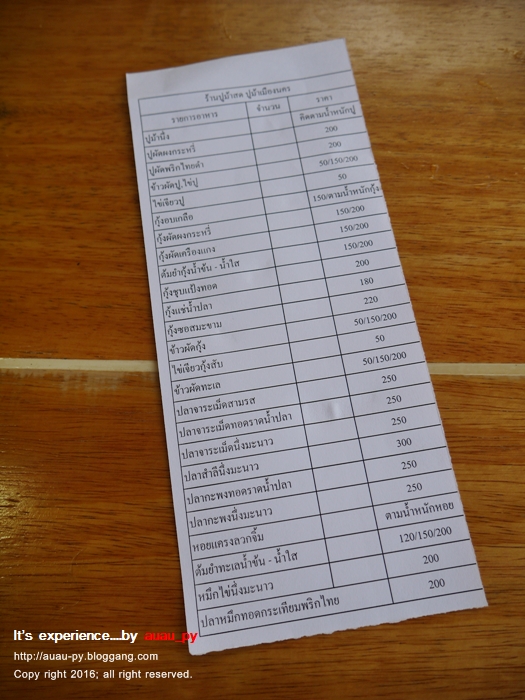 ร้านปูม้าสด ปูม้าเมืองนคร
รายการอาหาร จำนวน ราคา
ปูม้านึ่ง คิดตามน้ำหนักปู
ปูผัดผงกระหรี่ 200
ปูผัดพริกไทยดำ 200
ข้าวผัดปู,ไข่ปู 50/150/200
ไข่เจียวปู 50
กุ้งอบเกลือ 150/ตามน้ำหนักกุ้ง
กุ้งผัดผงกระหรี่ 150/200
กุ้งผัดเครื่องแกง 150/200
ต้มยำกุ้งน้ำข้น - น้ำใส 150/200
กุ้งชุบแป้งทอด 200
กุ้งแช่น้ำปลา 180
กุ้งซอสมะขาม 220
ข้าวผัดกุ้ง 50/150/200
ไข่เจียวกุ้งสับ 50
ข้าวผัดทะเล 50/150/200
ปลาจาระเม็ดสามรส 250
ปลาจาระเม็ดทอดราดน้ำปลา 250
ปลาจาระเม็ดนึ่งมะนาว 250
ปลาสำลีนึ่งมะนาว 300
ปลากะพงทอดราดน้ำปลา 250
ปลากะพงนึ่งมะนาว 250
หอยแครงลวกจิ้ม ตามน้ำหนักหอย
ต้มยำทะเลน้ำข้น - น้ำใส 120/150/200
หมึกไข่นึ่งมะนาว 200
ปลาหมึกทอดกระเทียมพริกไทย 200
It's experience....by auau_py
http://auau-py.bloggang.com
Copy right 2016; all right reserved.